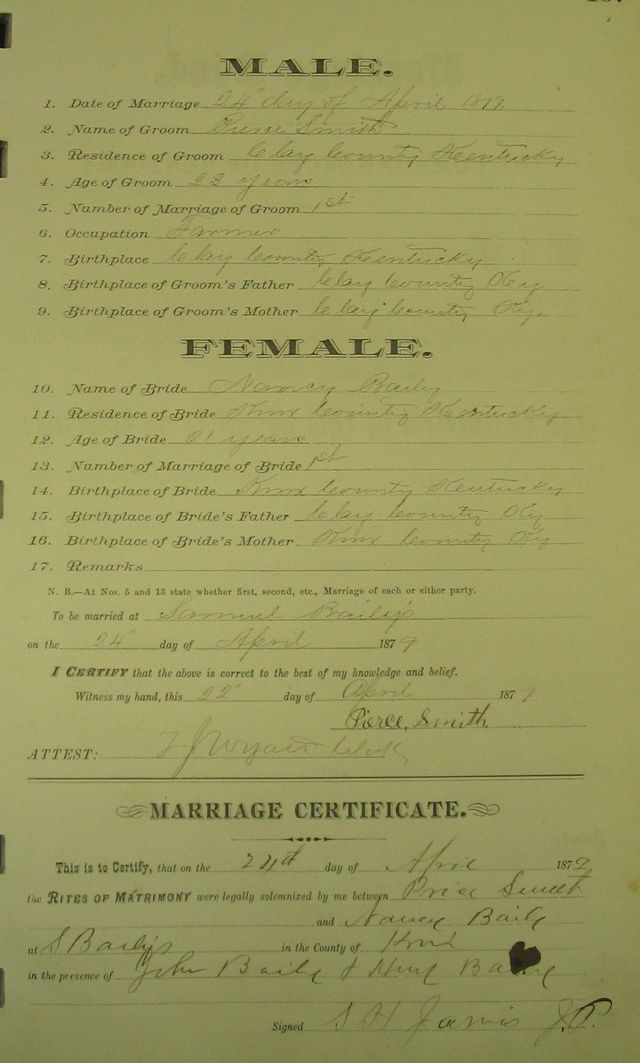 MALE.
1. Date of Marriage 24" day of April 1879
2. Name of Groom Pierce Smith
3. Residence of Groom Clay County Kentucky
4. Age of Groom 23 years
5. Number of Marriage of Groom 1st
6. Occupation Farmer
7. Birthplace Clay County Kentucky
8. Birthplace of Groom's Father Clay County Ky
9. Birthplace of Groom's Mother Clay County Ky.
FEMALE.
10. Name of Bride Nancy Baily
11. Residence of Bride Knox County Kentucky
12. Age of Bride 21 years
13. Number of Marriage of Bride 1st
14. Birthplace of Bride Knox County Kentucky
15. Birthplace of Bride's Father Clay County Ky
16. Birthplace of Bride's Mother Knox County Ky
17. Remarks
N. B.—At Nos. 5 and 13 state whether first, second, etc., Marriage of each or either party.
To be married at Samuel Baily's
on the 24" day of April 1879
I CERTIFY that the above is correct to the best of my knowledge and belief.
Witness my hand, this 22" day of April 1879
Pierce Smith
ATTEST: Wyatt Clerk
MARRIAGE CERTIFICATE.
This is to Certify, that on the 24th day of April 1879
the RITES OF MATRIMONY were legally solemnized by me between
and Nancy Baily
at S Baily's in the County of
in the presence of John Baily &
Signed S H Jarvis J.P.